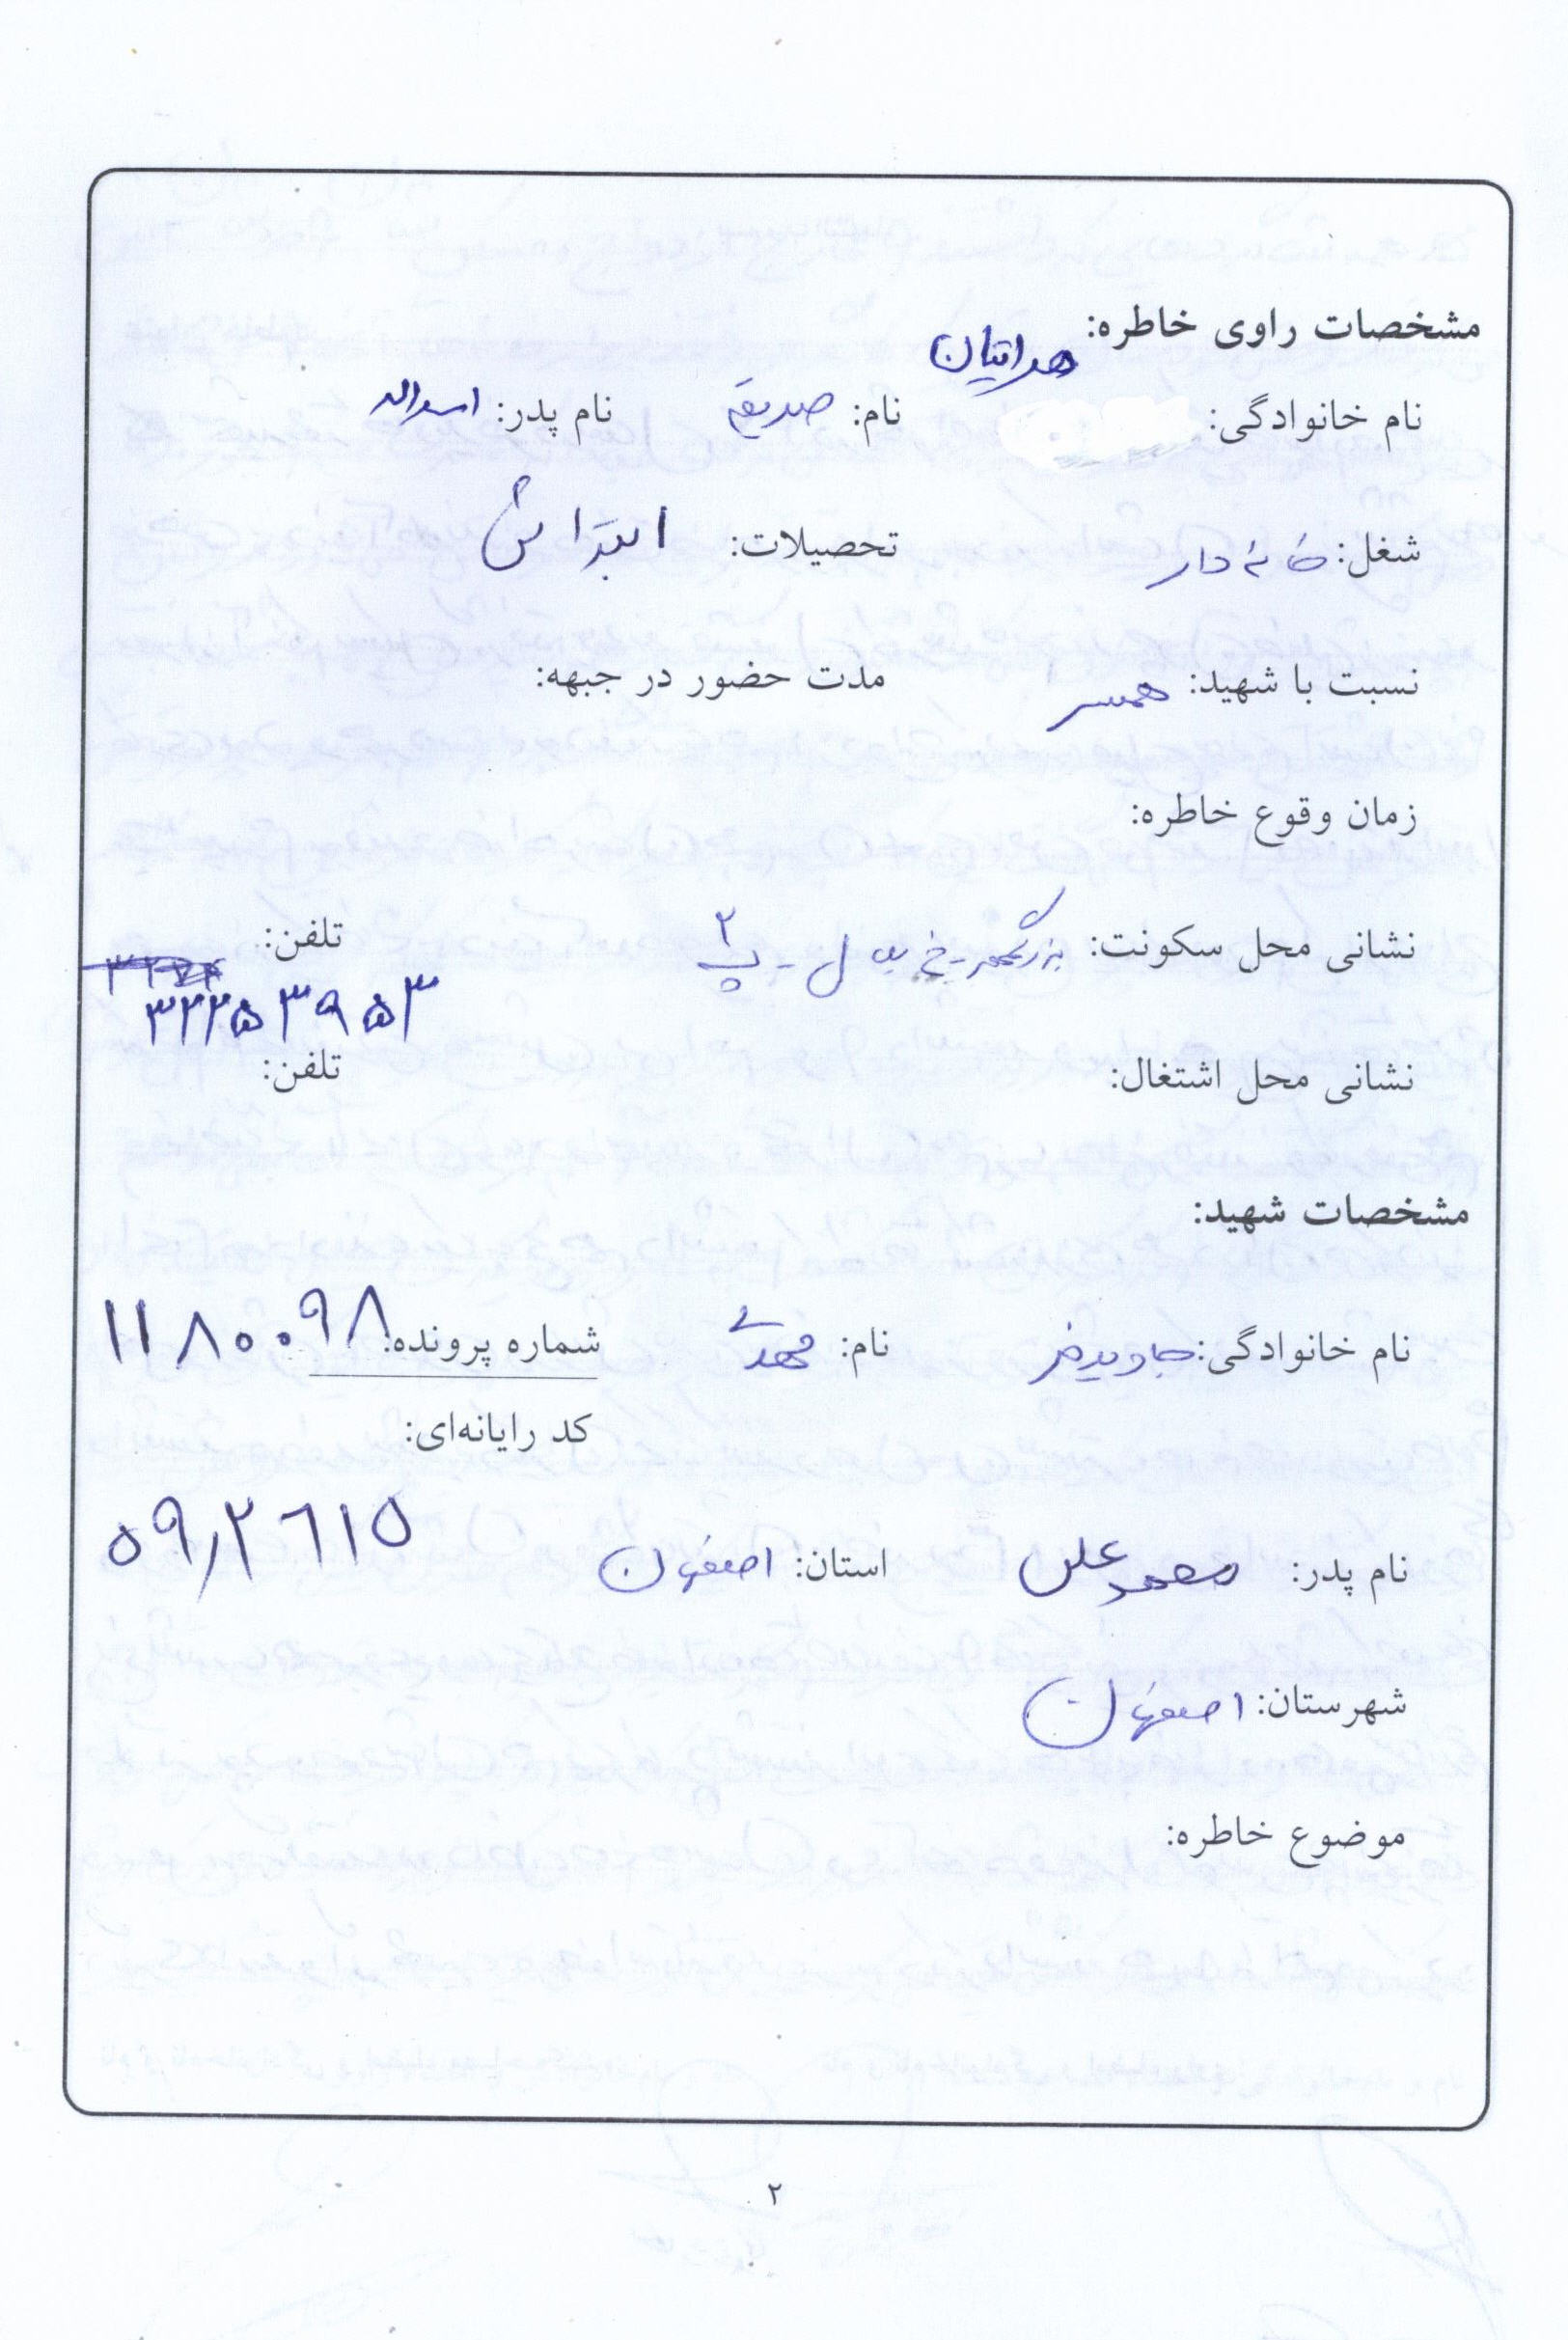 مشخصات راوی خاطره:
نام خانوادگی: هراتیان نام: صدیقه نام پدر: اسداله
شغل: خانه دار تحصیلات: ابتدائی
نسبت با شهید: همسر مدت حضور در جبهه:
زمان وقوع خاطره:
نشانی محل سکونت: بزرگمهر - خ - پ ۲ تلفن:
۳۲۲۵۳۹۵۳
نشانی محل اشتغال: تلفن:
مشخصات شهید:
نام خانوادگی: جاویدفر نام: مهدی شماره پرونده: ۱۱۸۰۰۹۸
کد رایانه‌ای:
نام پدر: محمد علی استان: اصفهان ۵۹٫۲۶۱۵
شهرستان: اصفهان
موضوع خاطره:
۲